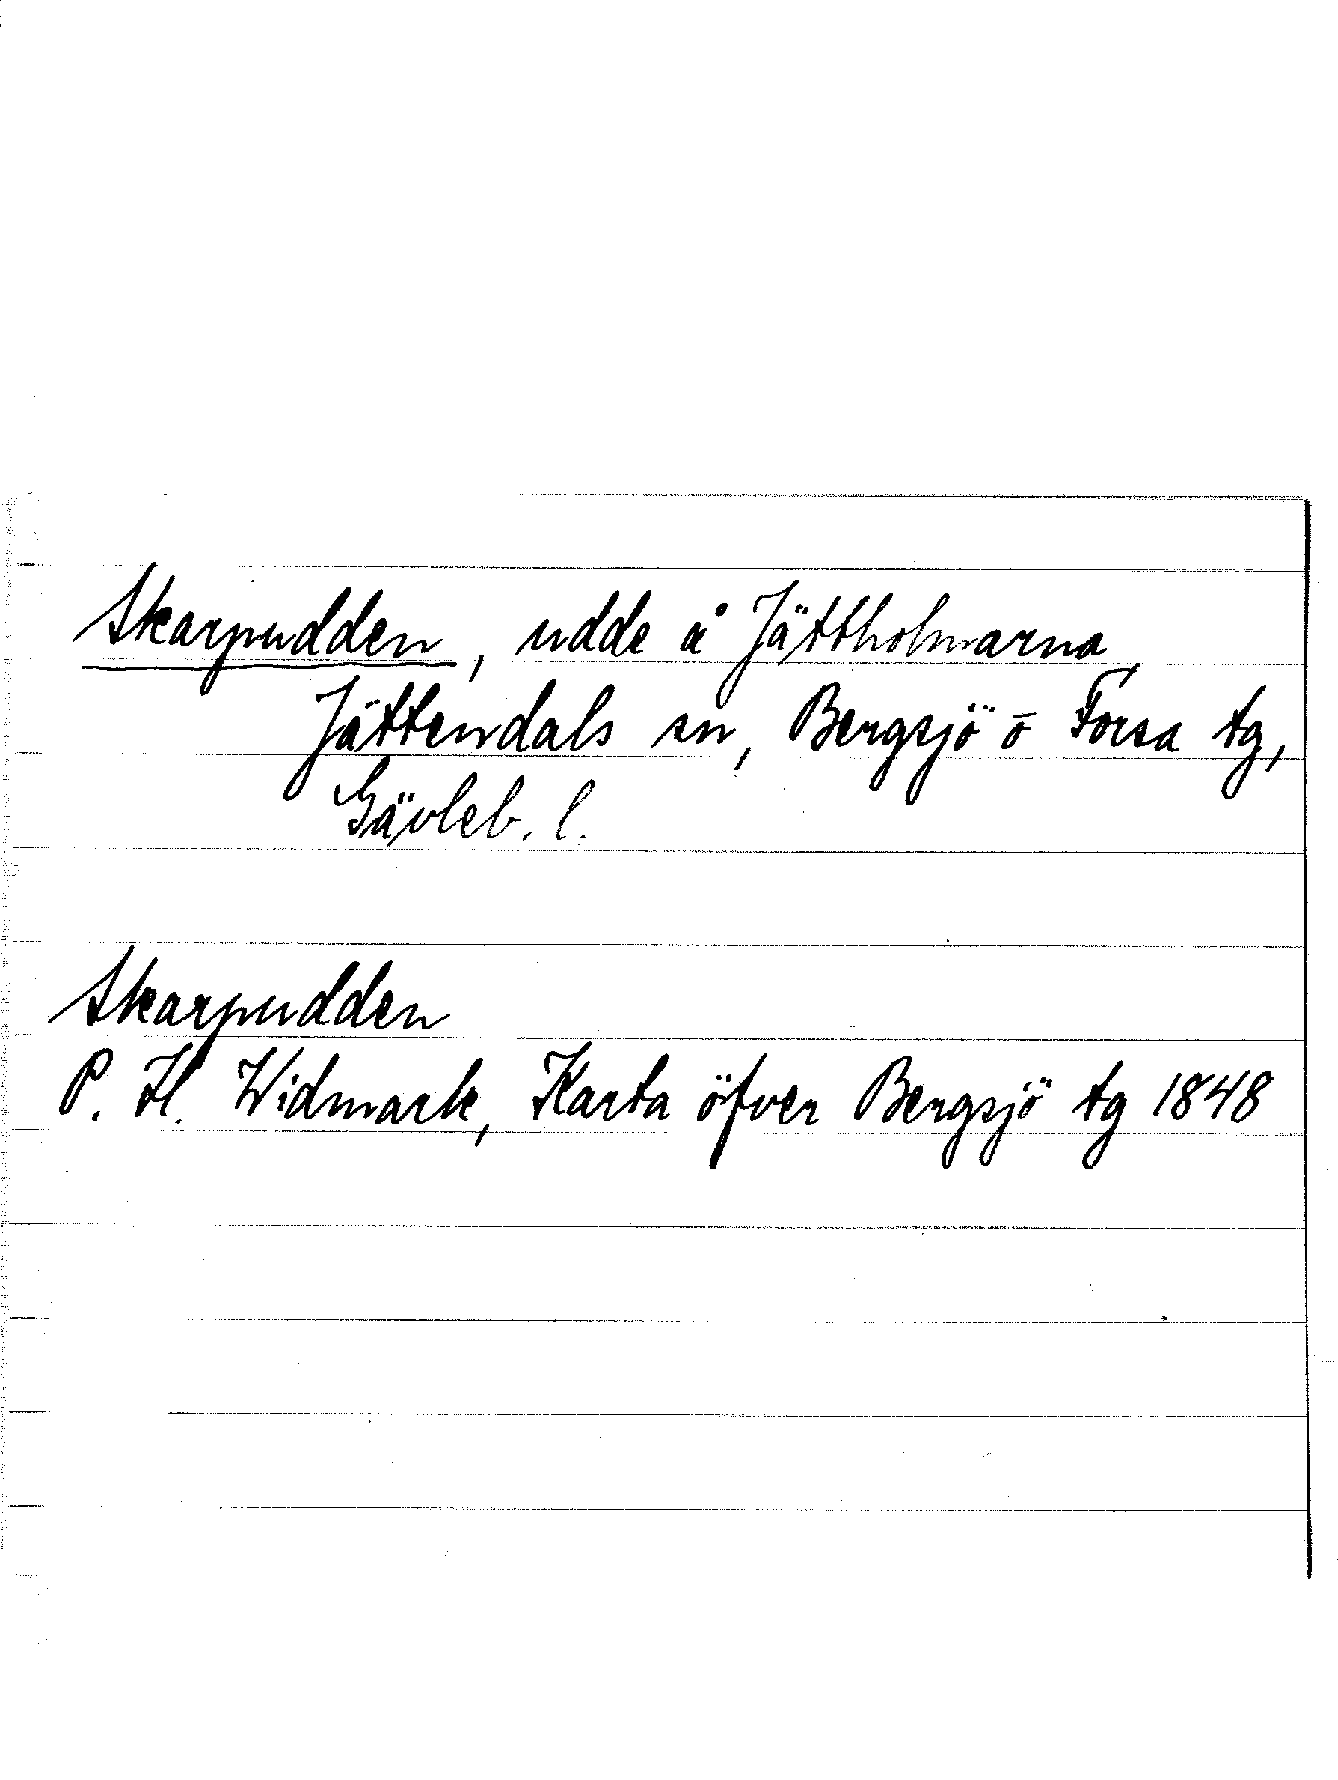 Skarpudden, udde å Jättholmarna,
Jättendals sn, Bergsjö o Forsa tg,
Gävleb. l.
Skarpudden
P. H. Widmark, Karta öfver Bergsjö tg 1848